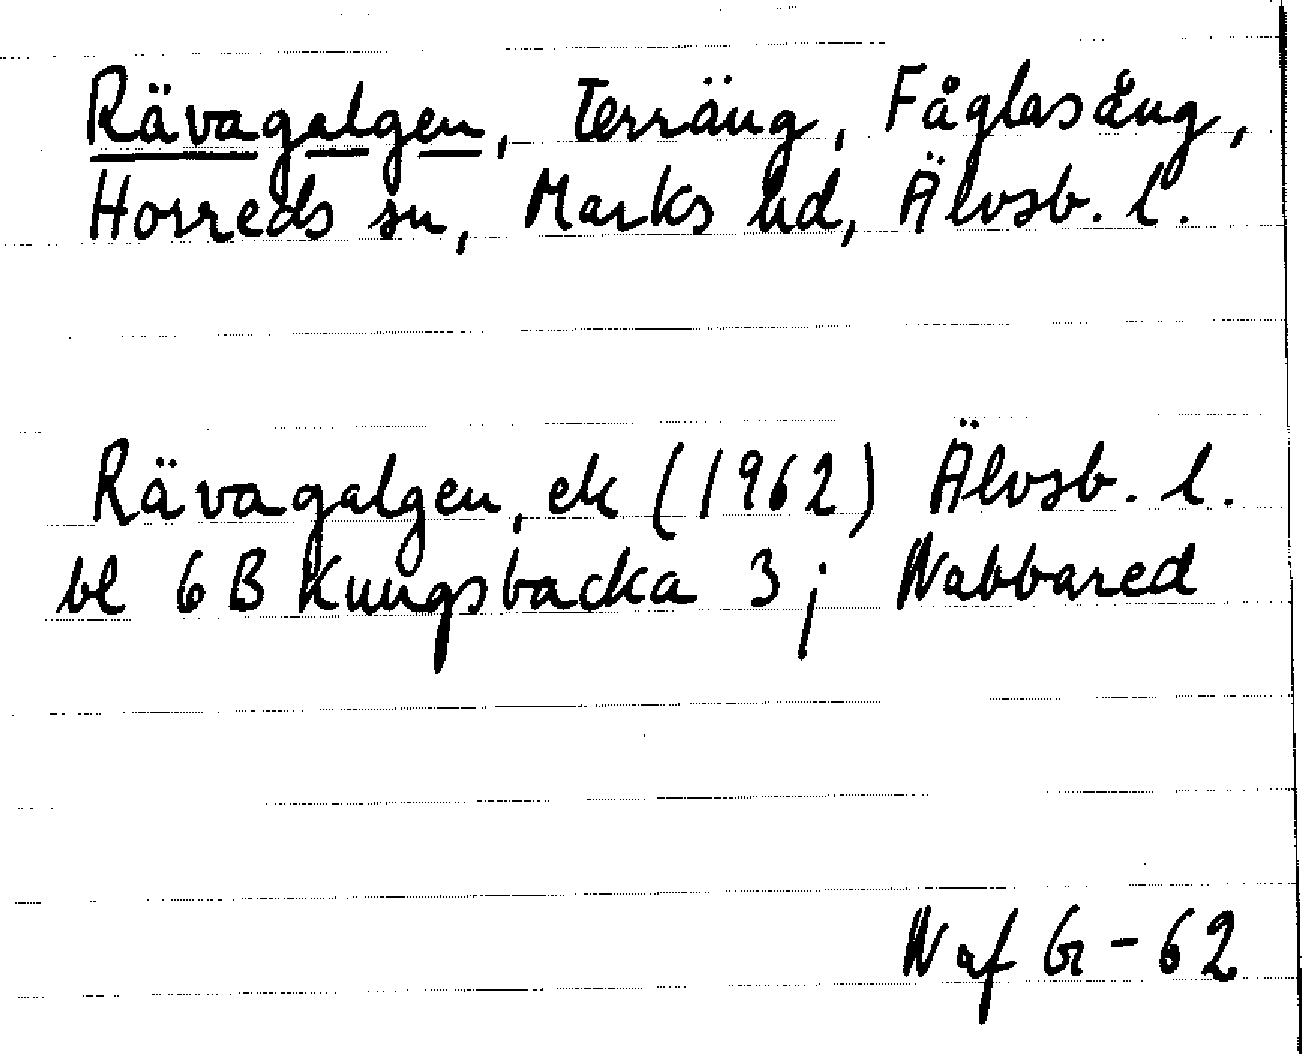 Rävagalgen, Terräng, Fåglasång,
Horreds sn, Marks hd, Älvsb. l.
Rävagalgen, ek (1962) Älvsb. l.
bl 6B Kungsbacka 3; Nabbared
Naf Gr-62